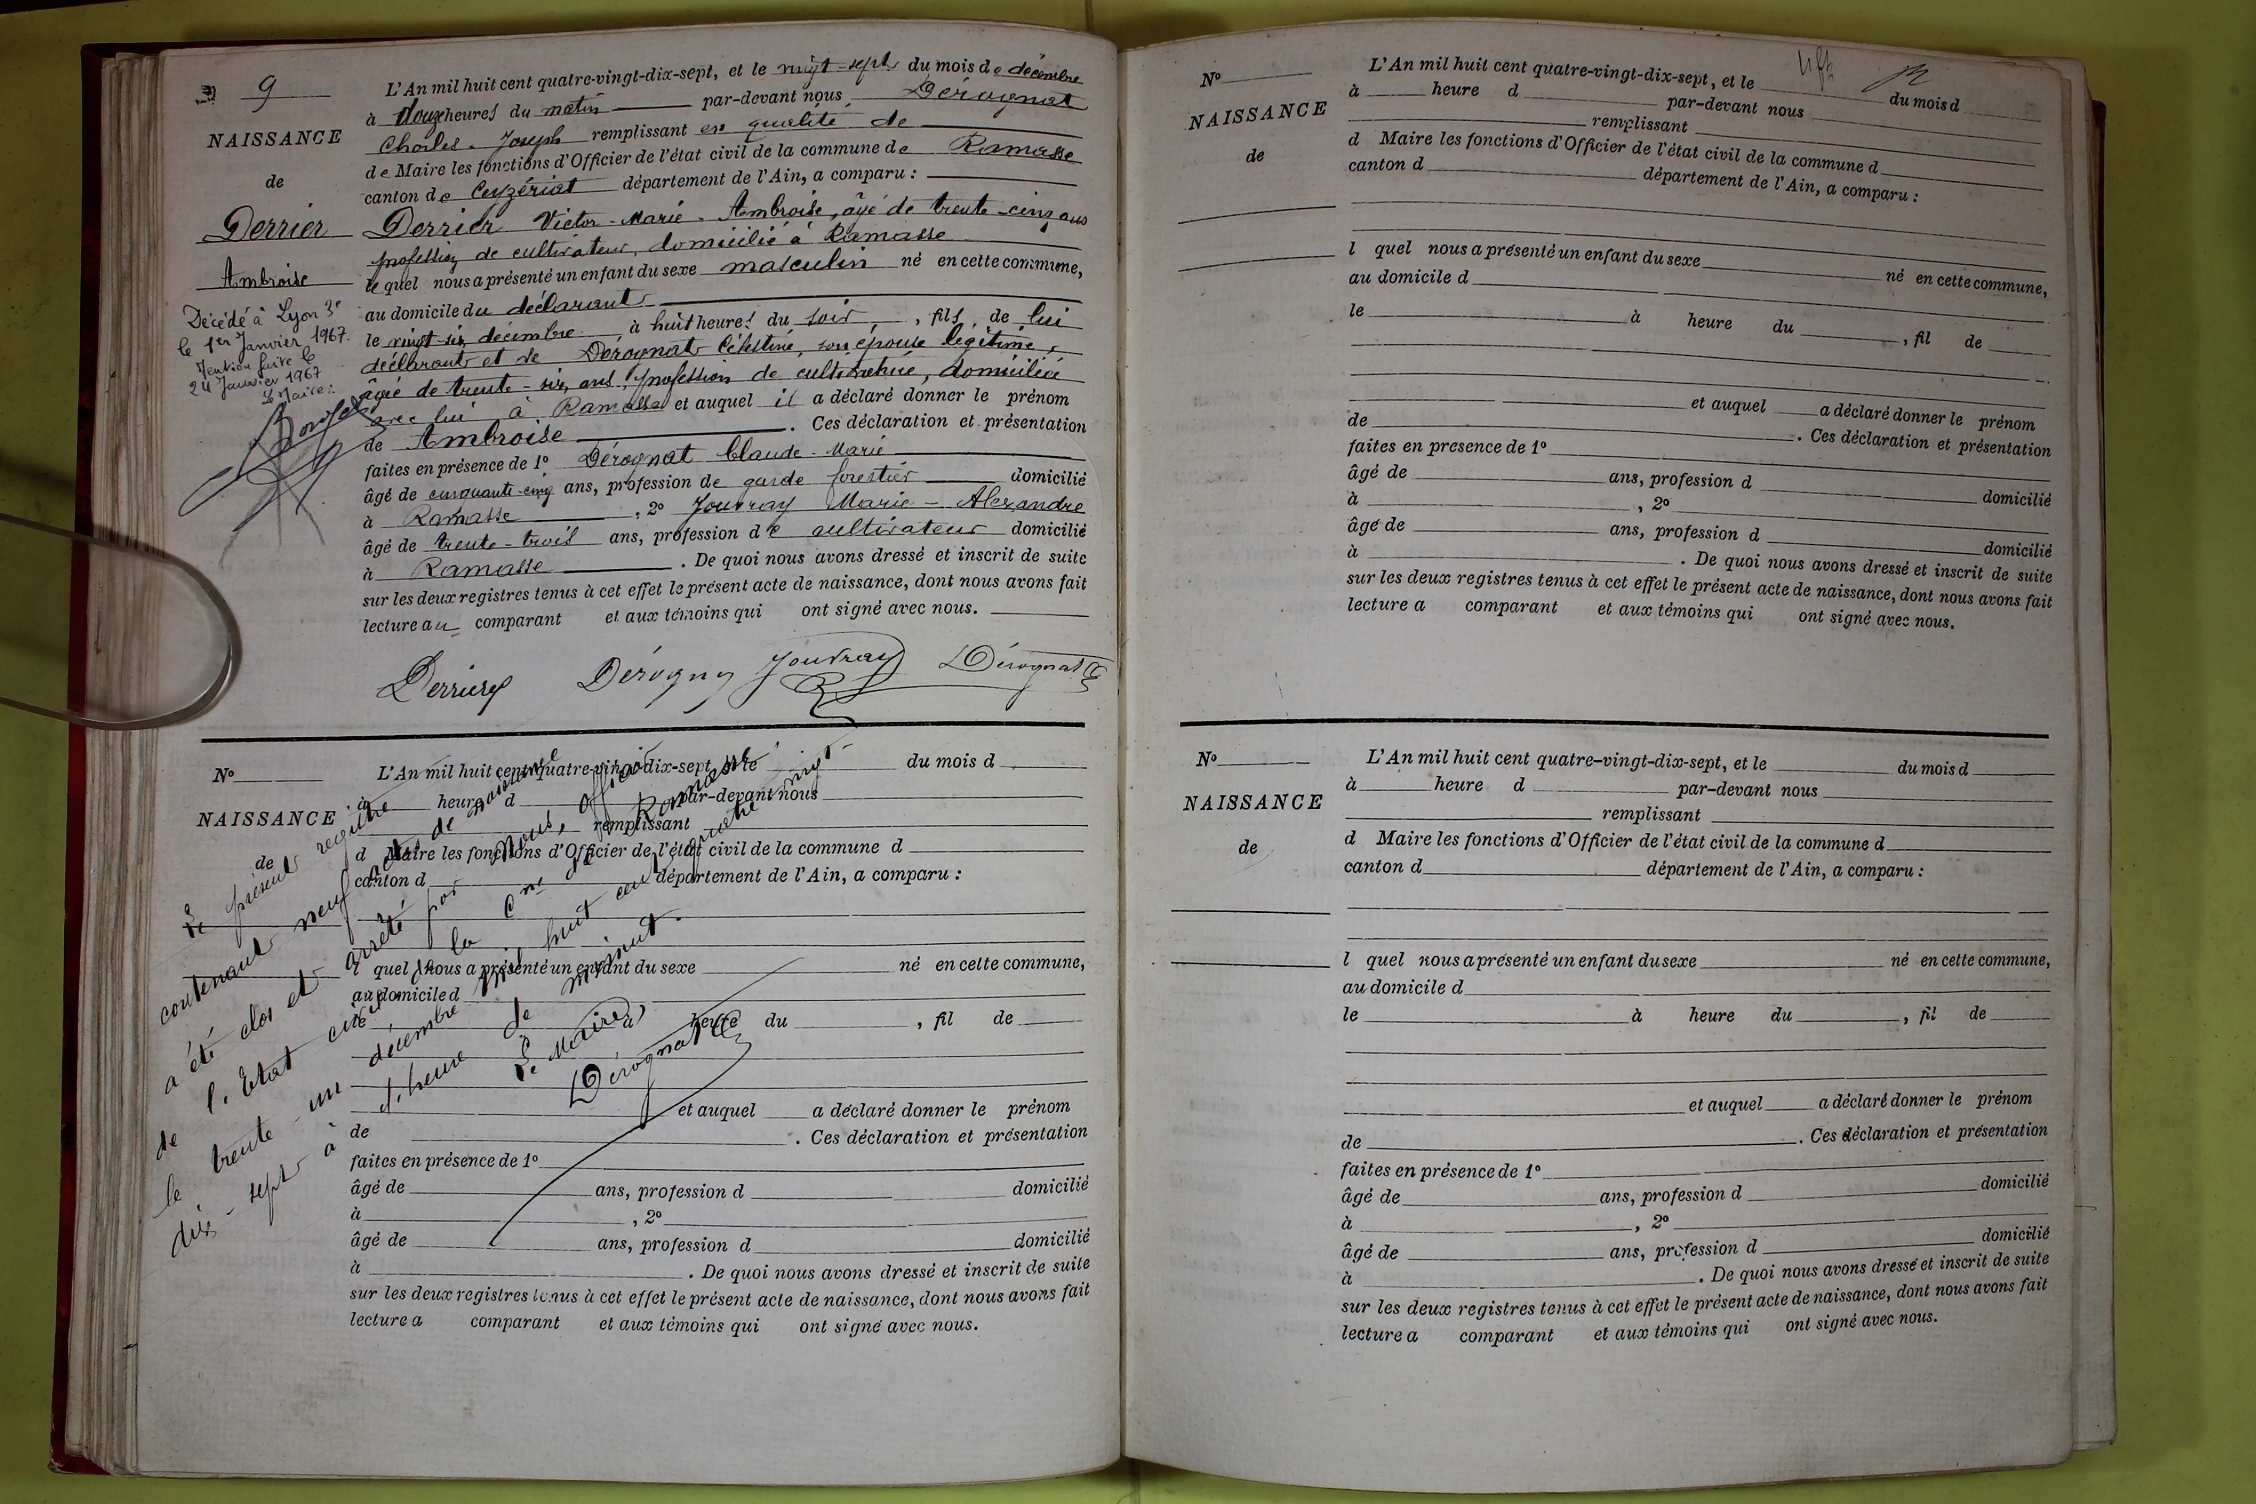 9
NAISSANCE
de
Derrier
Ambroise
Décédé à Lyon 3e
le 1er Janvier 1967.
Mention faite le
24 Janvier 1967
Le Maire:
L'An mil huit cent quatre-vingt-dix-sept, et le vingt-sept du mois de décembre
à douze heures du matin par-devant nous Dérognat
Charles-Joseph remplissant en qualité de
de Maire les fonctions d'Officier de l'état civil de la commune de Ramasse
canton de Ceyzériat département de l'Ain, a comparu :
Derrier Victor-Marie-Ambroise, âgé de trente-cinq ans
profession de cultivateur, domicilié à Ramasse
lequel nous a présenté un enfant du sexe masculin né en cette commune,
au domicile du déclarant
le vingt-six décembre à huit heures du soir, fils de lui
déclarant et de Dérognat Célestine, son épouse légitime,
âgée de trente-six ans, profession de cultivatrice, domiciliée
avec lui à Ramasse et auquel il a déclaré donner le prénom
de Ambroise . Ces déclaration et présentation
faites en présence de 1° Dérognat Claude-Marie
âgé de cinquante-cinq ans, profession de garde forestier domicilié
à Ramasse , 2° Jouvray Marie-Alexandre
âgé de trente-trois ans, profession de cultivateur domicilié
à Ramasse . De quoi nous avons dressé et inscrit de suite
sur les deux registres tenus à cet effet le présent acte de naissance, dont nous avons fait
lecture au comparant et aux témoins qui ont signé avec nous.
Derrier Dérogny Jouvray Dérognat
N°
NAISSANCE
de
L'An mil huit cent quatre-vingt-dix-sept, et le du mois d
à heure d par-devant nous
remplissant
d Maire les fonctions d'Officier de l'état civil de la commune d
canton d département de l'Ain, a comparu :
l quel nous a présenté un enfant du sexe né en cette commune,
au domicile d
le à heure du , fil de
et auquel a déclaré donner le prénom
de . Ces déclaration et présentation
faites en présence de 1°
âgé de ans, profession d domicilié
à , 2°
âgé de ans, profession d domicilié
à . De quoi nous avons dressé et inscrit de suite
sur les deux registres tenus à cet effet le présent acte de naissance, dont nous avons fait
lecture a comparant et aux témoins qui ont signé avec nous.
Le présent registre
contenant neuf actes de naissance
a été clos et arrêté par nous, officier
de l'Etat civil de la Cne de Ramasse
le trente-un décembre mil huit cent quatre vingt
dix-sept à heure de minuit.
Le Maire,
Dérognat
N°
NAISSANCE
de
L'An mil huit cent quatre-vingt-dix-sept, et le du mois d
à heure d par-devant nous
remplissant
d Maire les fonctions d'Officier de l'état civil de la commune d
canton d département de l'Ain, a comparu :
l quel nous a présenté un enfant du sexe né en cette commune,
au domicile d
le à heure du , fil de
et auquel a déclaré donner le prénom
de . Ces déclaration et présentation
faites en présence de 1°
âgé de ans, profession d domicilié
à , 2°
âgé de ans, profession d domicilié
à . De quoi nous avons dressé et inscrit de suite
sur les deux registres tenus à cet effet le présent acte de naissance, dont nous avons fait
lecture a comparant et aux témoins qui ont signé avec nous.
N°
NAISSANCE
de
L'An mil huit cent quatre-vingt-dix-sept, et le du mois d
à heure d par-devant nous
remplissant
d Maire les fonctions d'Officier de l'état civil de la commune d
canton d département de l'Ain, a comparu :
l quel nous a présenté un enfant du sexe né en cette commune,
au domicile d
le à heure du , fil de
et auquel a déclaré donner le prénom
de . Ces déclaration et présentation
faites en présence de 1°
âgé de ans, profession d domicilié
à , 2°
âgé de ans, profession d domicilié
à . De quoi nous avons dressé et inscrit de suite
sur les deux registres tenus à cet effet le présent acte de naissance, dont nous avons fait
lecture a comparant et aux témoins qui ont signé avec nous.